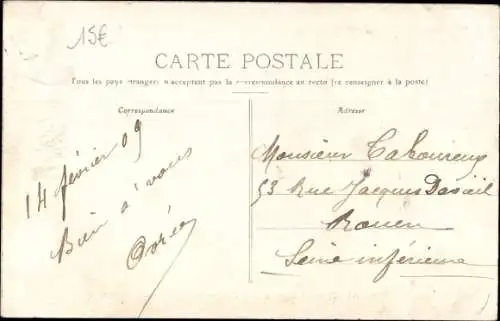 15€
CARTE POSTALE
Tous les pays étrangers n'acceptent pas la correspondance au recto (se renseigner à la poste)
Correspondance
14 février 09
Bien à vous
Adresse
Monsieur Taboureux
53 Rue Jacques
Rouen
Seine inférieure